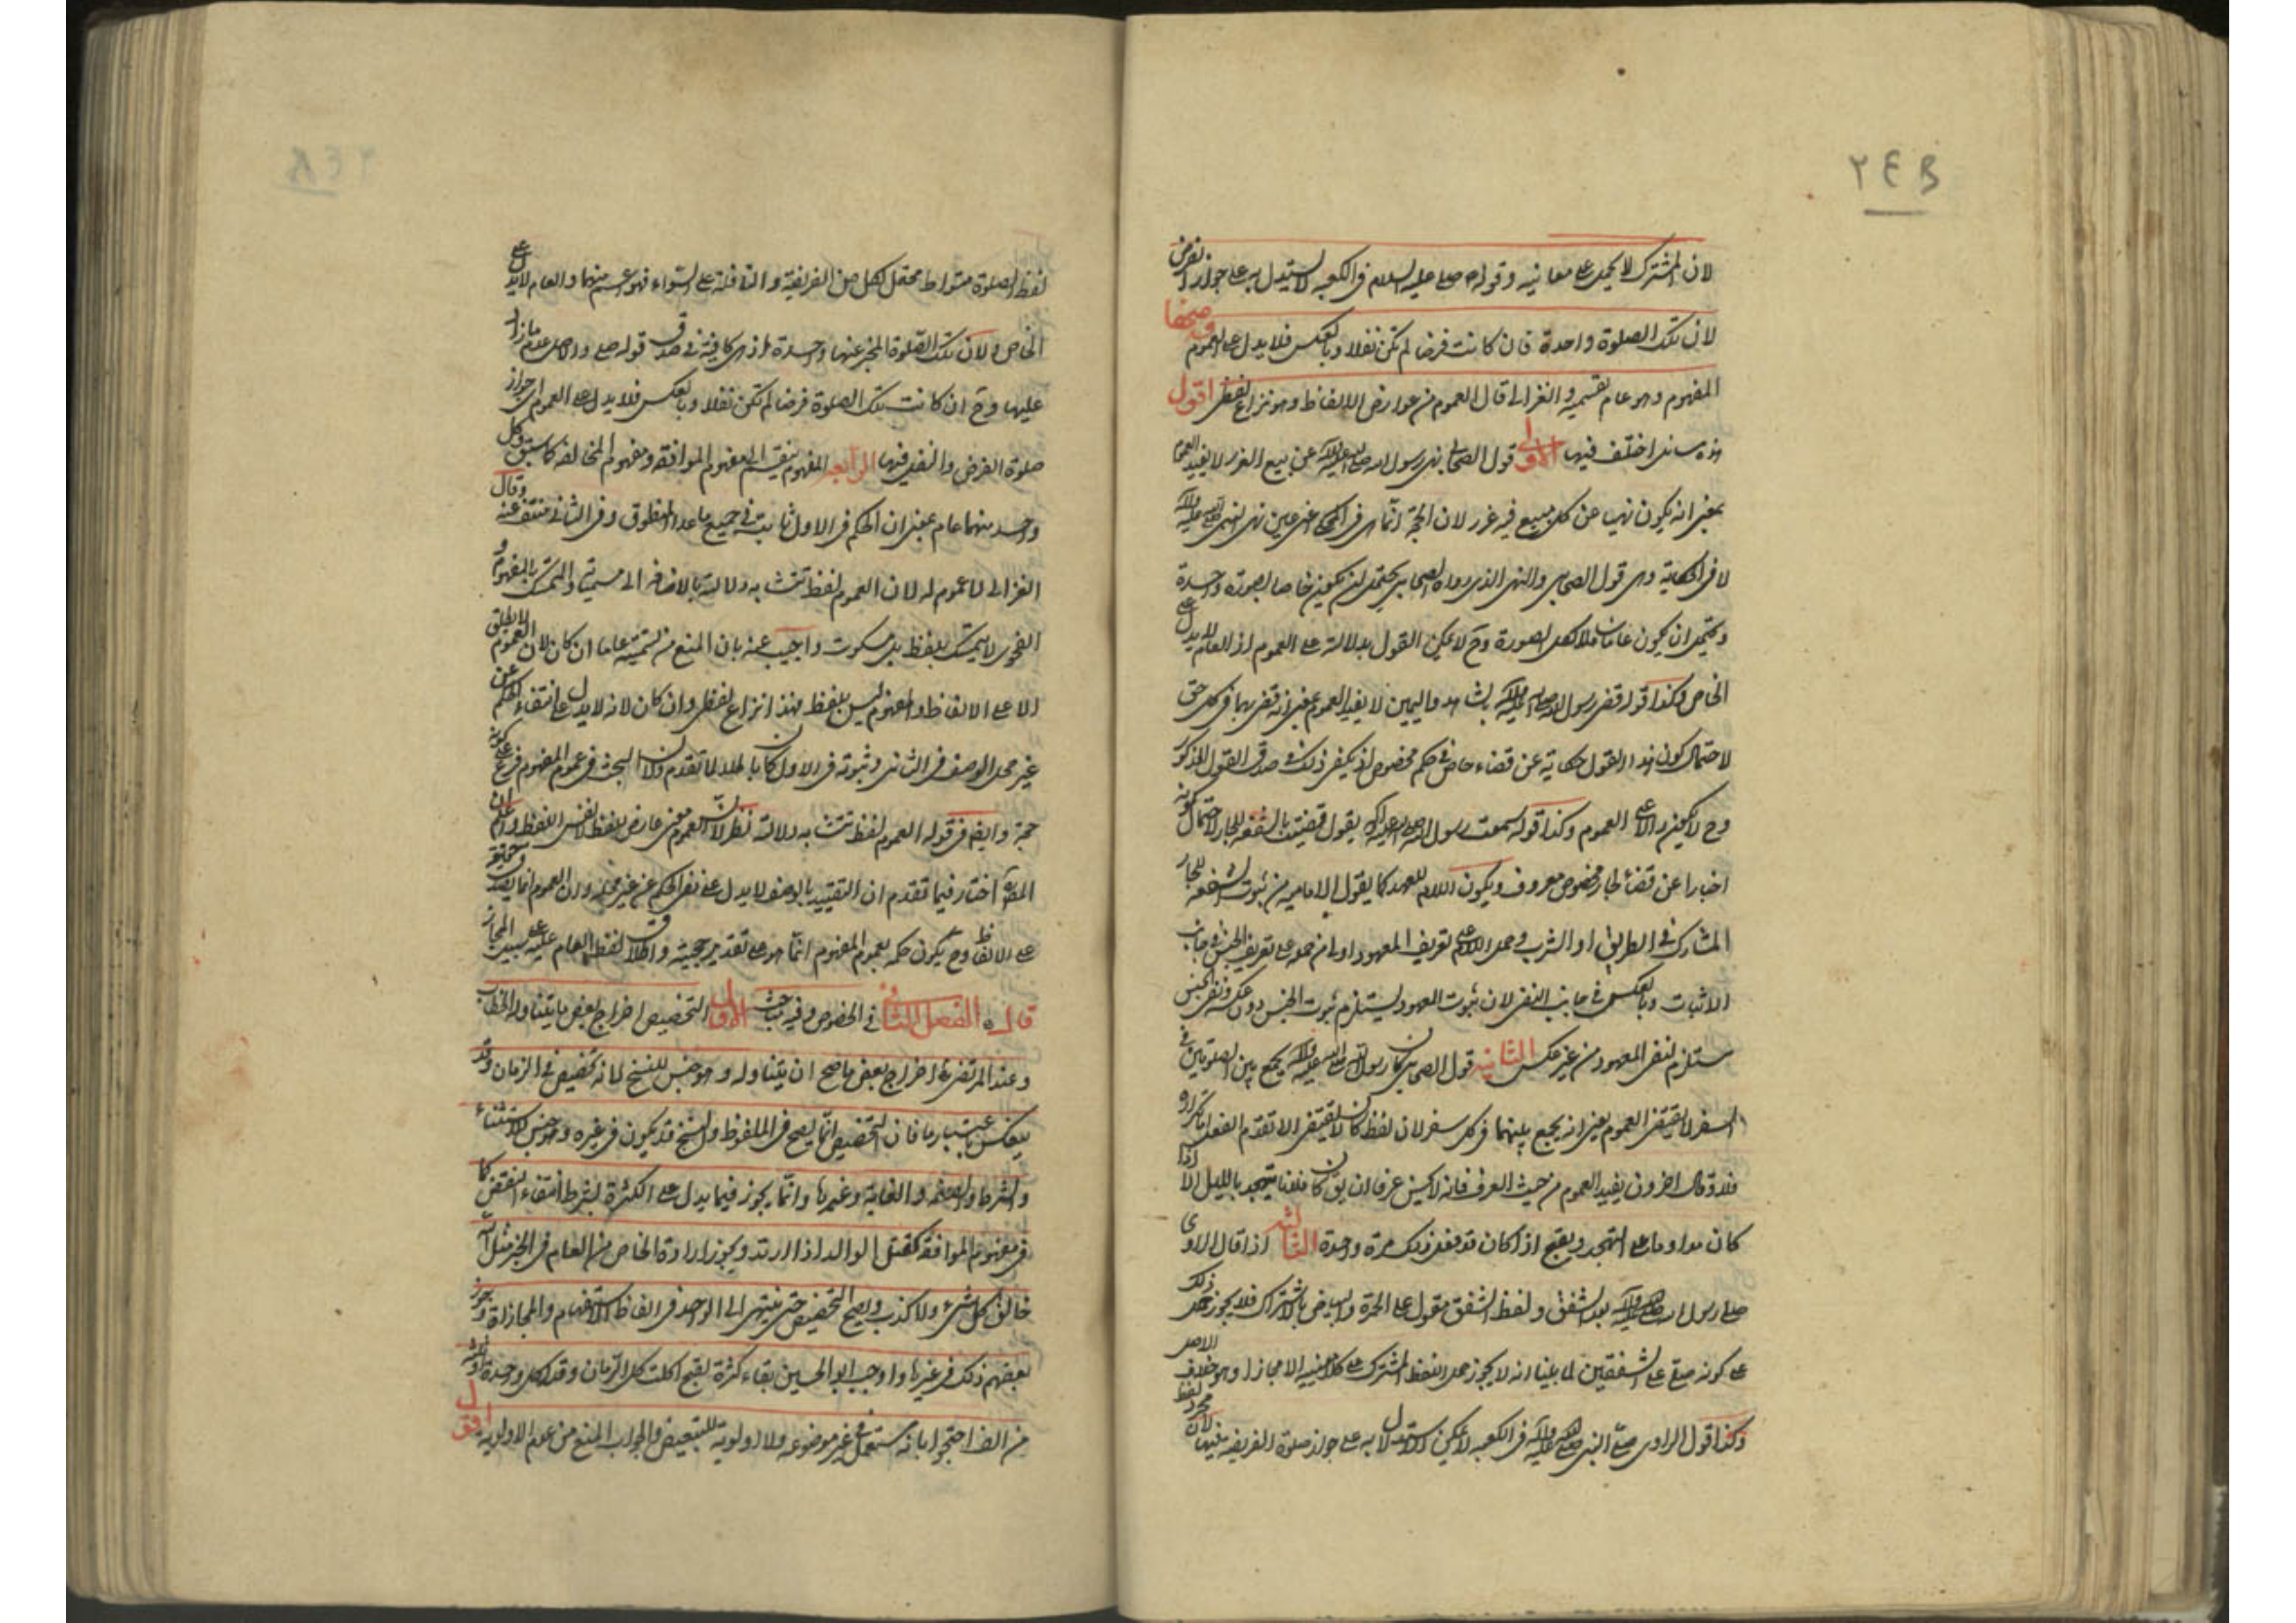 ٢٤٨
لان المشترك لا يحمل على معانيه وقوله صلى عليه السلام في الكعبة لا يستدل به على جواز الفرض
لان تلك الصلوة واحدة فان كانت فرضا لم تكن نفلا وبالعكس فلا يدل على العموم
المفهوم وهو عام بقسميه والغزالي قال العموم من عوارض الالفاظ وهو نزاع لفظي اقول
هذه مسائل اختلف فيها الاولى قول الصحابي نهى رسول الله صلى الله عليه وآله عن بيع الغرر لا يفيد العموم
بمعنى انه يكون نهيا عن كل بيع فيه غرر لان الحجة انما هي في المحكي اعني عين نهي النبي صلى الله عليه وآله
لا في الحكاية وهى قول الصحابي والنهي الذي رواه الصحابي يحتمل ان يكون خاصا بصورة واحدة
ويحتمل ان يكون عاما شاملا لكل صورة وح لا يمكن القول بدلالته على العموم اذ العام لا يدل على
الخاص وكذا قوله قضى رسول الله صلى الله عليه وآله بالشاهد واليمين لا يفيد العموم بمعنى انه قضى بهما في كل حق
لاحتمال كون هذا القول حكاية عن قضاء خاص في حكم مخصوص اذ يكفي ذلك في صدق القول المذكور
وح لا يكون دالا على العموم وكذا قوله سمعت رسول الله صلى الله عليه وآله يقول قضيت بالشفعة للجار لاحتمال كونه
اخبارا عن قضاء لجار مخصوص معروف ويكون اللام للعهد كما يقول الامامية من ثبوت الشفعة للجار
المشارك في الطريق او الشرب وحمل اللام على تعريف المعهود اولى من حمله على تعريف الجنس في جانب
الاثبات وبالعكس في جانب النفي لان ثبوت المعهود يستلزم ثبوت الجنس دون عكسه ونفي الجنس
مستلزم لنفي المعهود من غير عكس الثانية قول الصحابي كان رسول الله صلى الله عليه وآله يجمع بين الصلوتين في
السفر لا يقتضي العموم يعني انه يجمع بينهما في كل سفر لان لفظ كان لا يقتضي الا تقدم الفعل اما تكراره
فلا وقال اخرون يفيد العموم من حيث العرف فانه لا يحسن عرفا ان يق كان فلانا يتهجد بالليل الا اذا
كان مداوما على التهجد ويقبح اذا كان قد فعل ذلك مرة واحدة الثالثة اذا قال الراوي
صلى رسول الله صلى الله عليه وآله بعد الشفق ولفظ الشفق مقول على الحمرة والبياض بالاشتراك فلا يجوز حمل ذلك
على كونه صلى على الشفقين لما بينا انه لا يجوز حمل اللفظ المشترك على كلا معنييه الا مجازا وهو خلاف الاصل
وكذا قول الراوي صلى النبي صلى الله عليه وآله في الكعبة لا يمكن الاستدلال به على جواز صلوة الفريضة فيها لان مجرد لفظ
لفظ الصلوة متواط محتمل لكل من الفريضة والنافلة على السواء فهو اعم منهما والعام لا يدل على
الخاص ولان تلك الصلوة المخبر عنها واحدة اذ هي كافية في صدق قوله صلى والاصل عدم ما زاد
عليها وح ان كانت تلك الصلوة فرضا لم تكن نفلا وبالعكس فلا يدل على العموم اي جواز
صلوة الفرض والنفل فيها الرابعة المفهوم ينقسم الى مفهوم الموافقة ومفهوم المخالفة كما سبق وكل
واحد منهما عام بمعنى ان الحكم في الاول ثابت في جميع ما عدا المنطوق وفي الثاني منتف عنه وقال
الغزالي لا عموم له لان العموم لفظ تتشابه دلالته بالاضافة الى مسمياته والتمسك بالمفهوم و
الفحوى لا يتمسك بلفظ بل بسكوت واجيب عنه بان المنع من تسميته عاما ان كان لان العموم لا يطلق
الا على الالفاظ والمفهوم ليس بلفظ فهذا نزاع لفظي وان كان لانه لا يدل على انتفاء الحكم عن
غير محل الوصف في الثاني وثبوته في الاول كان باطلا لما تقدم ولان البحث في عموم المفهوم فرع على كونه
حجة وايضا في قوله العموم لفظ تتشابه دلالته نظر لان العموم معنى عارض للفظ لا نفس اللفظ واعلم ان
المصنف اختار فيما تقدم ان التقييد بالوصف لا يدل على نفي الحكم عن غير محله وان العموم انما يصدق حقيقة
على الالفاظ وح يكون حكمه بعموم المفهوم انما هو على تقدير حجيته واطلاق لفظ العام عليه على سبيل المجاز
قال ه الفصل الثاني في الخصوص وفيه مباحث الاول التخصيص اخراج بعض ما يتناوله الخطاب
وعند المرتضى اخراج بعض ما صح ان يتناوله وهو جنس للنسخ لانه تخصيص في الزمان وقد
ينعكس باعتبار ما فان التخصيص انما يصح في الملفوظ والنسخ قد يكون في غيره وهو جنس للاستثناء
والشرط والصفة والغاية وغيرها وانما يجوز فيما يدل على الكثرة بشرط انتفاء النقض كما
في مفهوم الموافقة كقتل الوالد اذا ارتد ويجوز ارادة الخاص من العام في الخبر مثل الله
خالق كل شيء ولا كذب ويصح التخصيص حتى ينتهي الى الواحد في الفاظ الاستفهام والمجازاة وجوز
بعضهم ذلك في غيرها واوجب ابو الحسين بقاء كثرة لقبح اكلت كل الرمان وقد اكل واحدة او ثلثة
من الف احتجوا بانه مستعمل في غير موضوعه ولا اولوية للبعض والجواب المنع من عدم الاولوية اقول